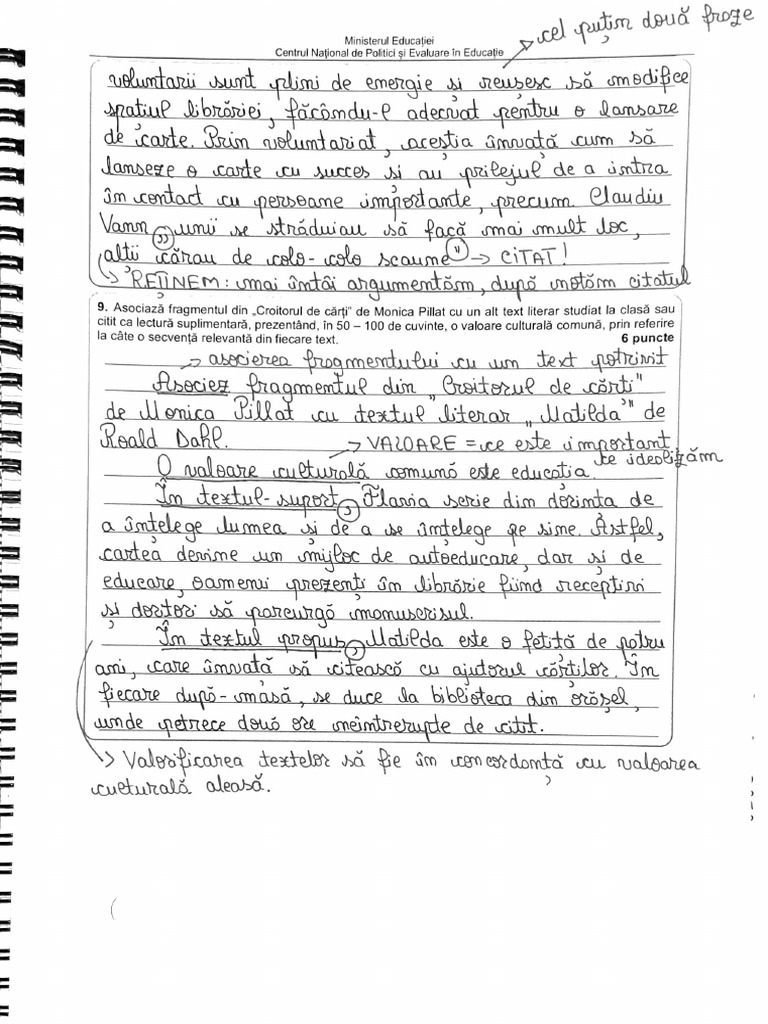 cel puțin două fraze
Ministerul Educației
Centrul Național de Politici și Evaluare în Educație
voluntarii sunt plini de energie și reușesc să modifice
spațiul librăriei, făcându-l adecvat pentru o lansare
de carte. Prin voluntariat, aceștia învață cum să
lanseze o carte cu succes și au prilejul de a intra
în contact cu persoane importante, precum Claudiu
Vann „unii se străduiau să facă mai mult loc,
alții cărau de colo-colo scaune" → CITAT!
→ REȚINEM: mai întâi argumentăm, după notăm citatul
9. Asociază fragmentul din „Croitorul de cărți” de Monica Pillat cu un alt text literar studiat la clasă sau
citit ca lectură suplimentară, prezentând, în 50 – 100 de cuvinte, o valoare culturală comună, prin referire
la câte o secvență relevantă din fiecare text. 6 puncte
→ asocierea fragmentului cu un text potrivit
Asociez fragmentul din „Croitorul de cărți"
de Monica Pillat cu textul literar „Matilda" de
Roald Dahl. → VALOARE = ce este important
te idealizăm
O valoare culturală comună este educația.
În textul-suport, Flavia scrie din dorința de
a înțelege lumea și de a se înțelege pe sine. Astfel,
cartea devine un mijloc de autoeducare, dar și de
educare, oamenii prezenți în librărie fiind receptivi
și doritori să parcurgă manuscrisul.
În textul propus, Matilda este o fetiță de patru
ani, care învață să citească cu ajutorul cărților. În
fiecare după-masă, se duce la biblioteca din orășel,
unde petrece două ore neîntrerupte de citit.
→ Valorificarea textelor să fie în concordanță cu valoarea
culturală aleasă.